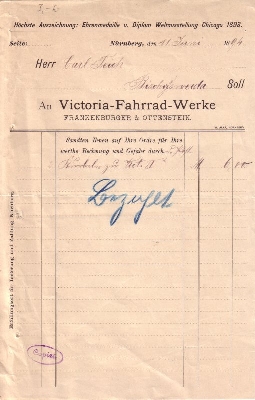 Höchste Auszeichnung: Ehrenmedaille u. Diplom Weltausstellung Chicago 1893.
Seite
Nürnberg, den 11. Juni 1894
Herr Carl
Soll
An Victoria-Fahrrad-Werke
FRANKENBURGER & OTTENSTEIN.
Sandten Ihnen auf Ihre Ordre für Ihre
werthe Rechnung und Gefahr durch Post
M 6.00
Bezahlt
Erfüllungsort für Lieferung und Zahlung Nürnberg.
Copirt